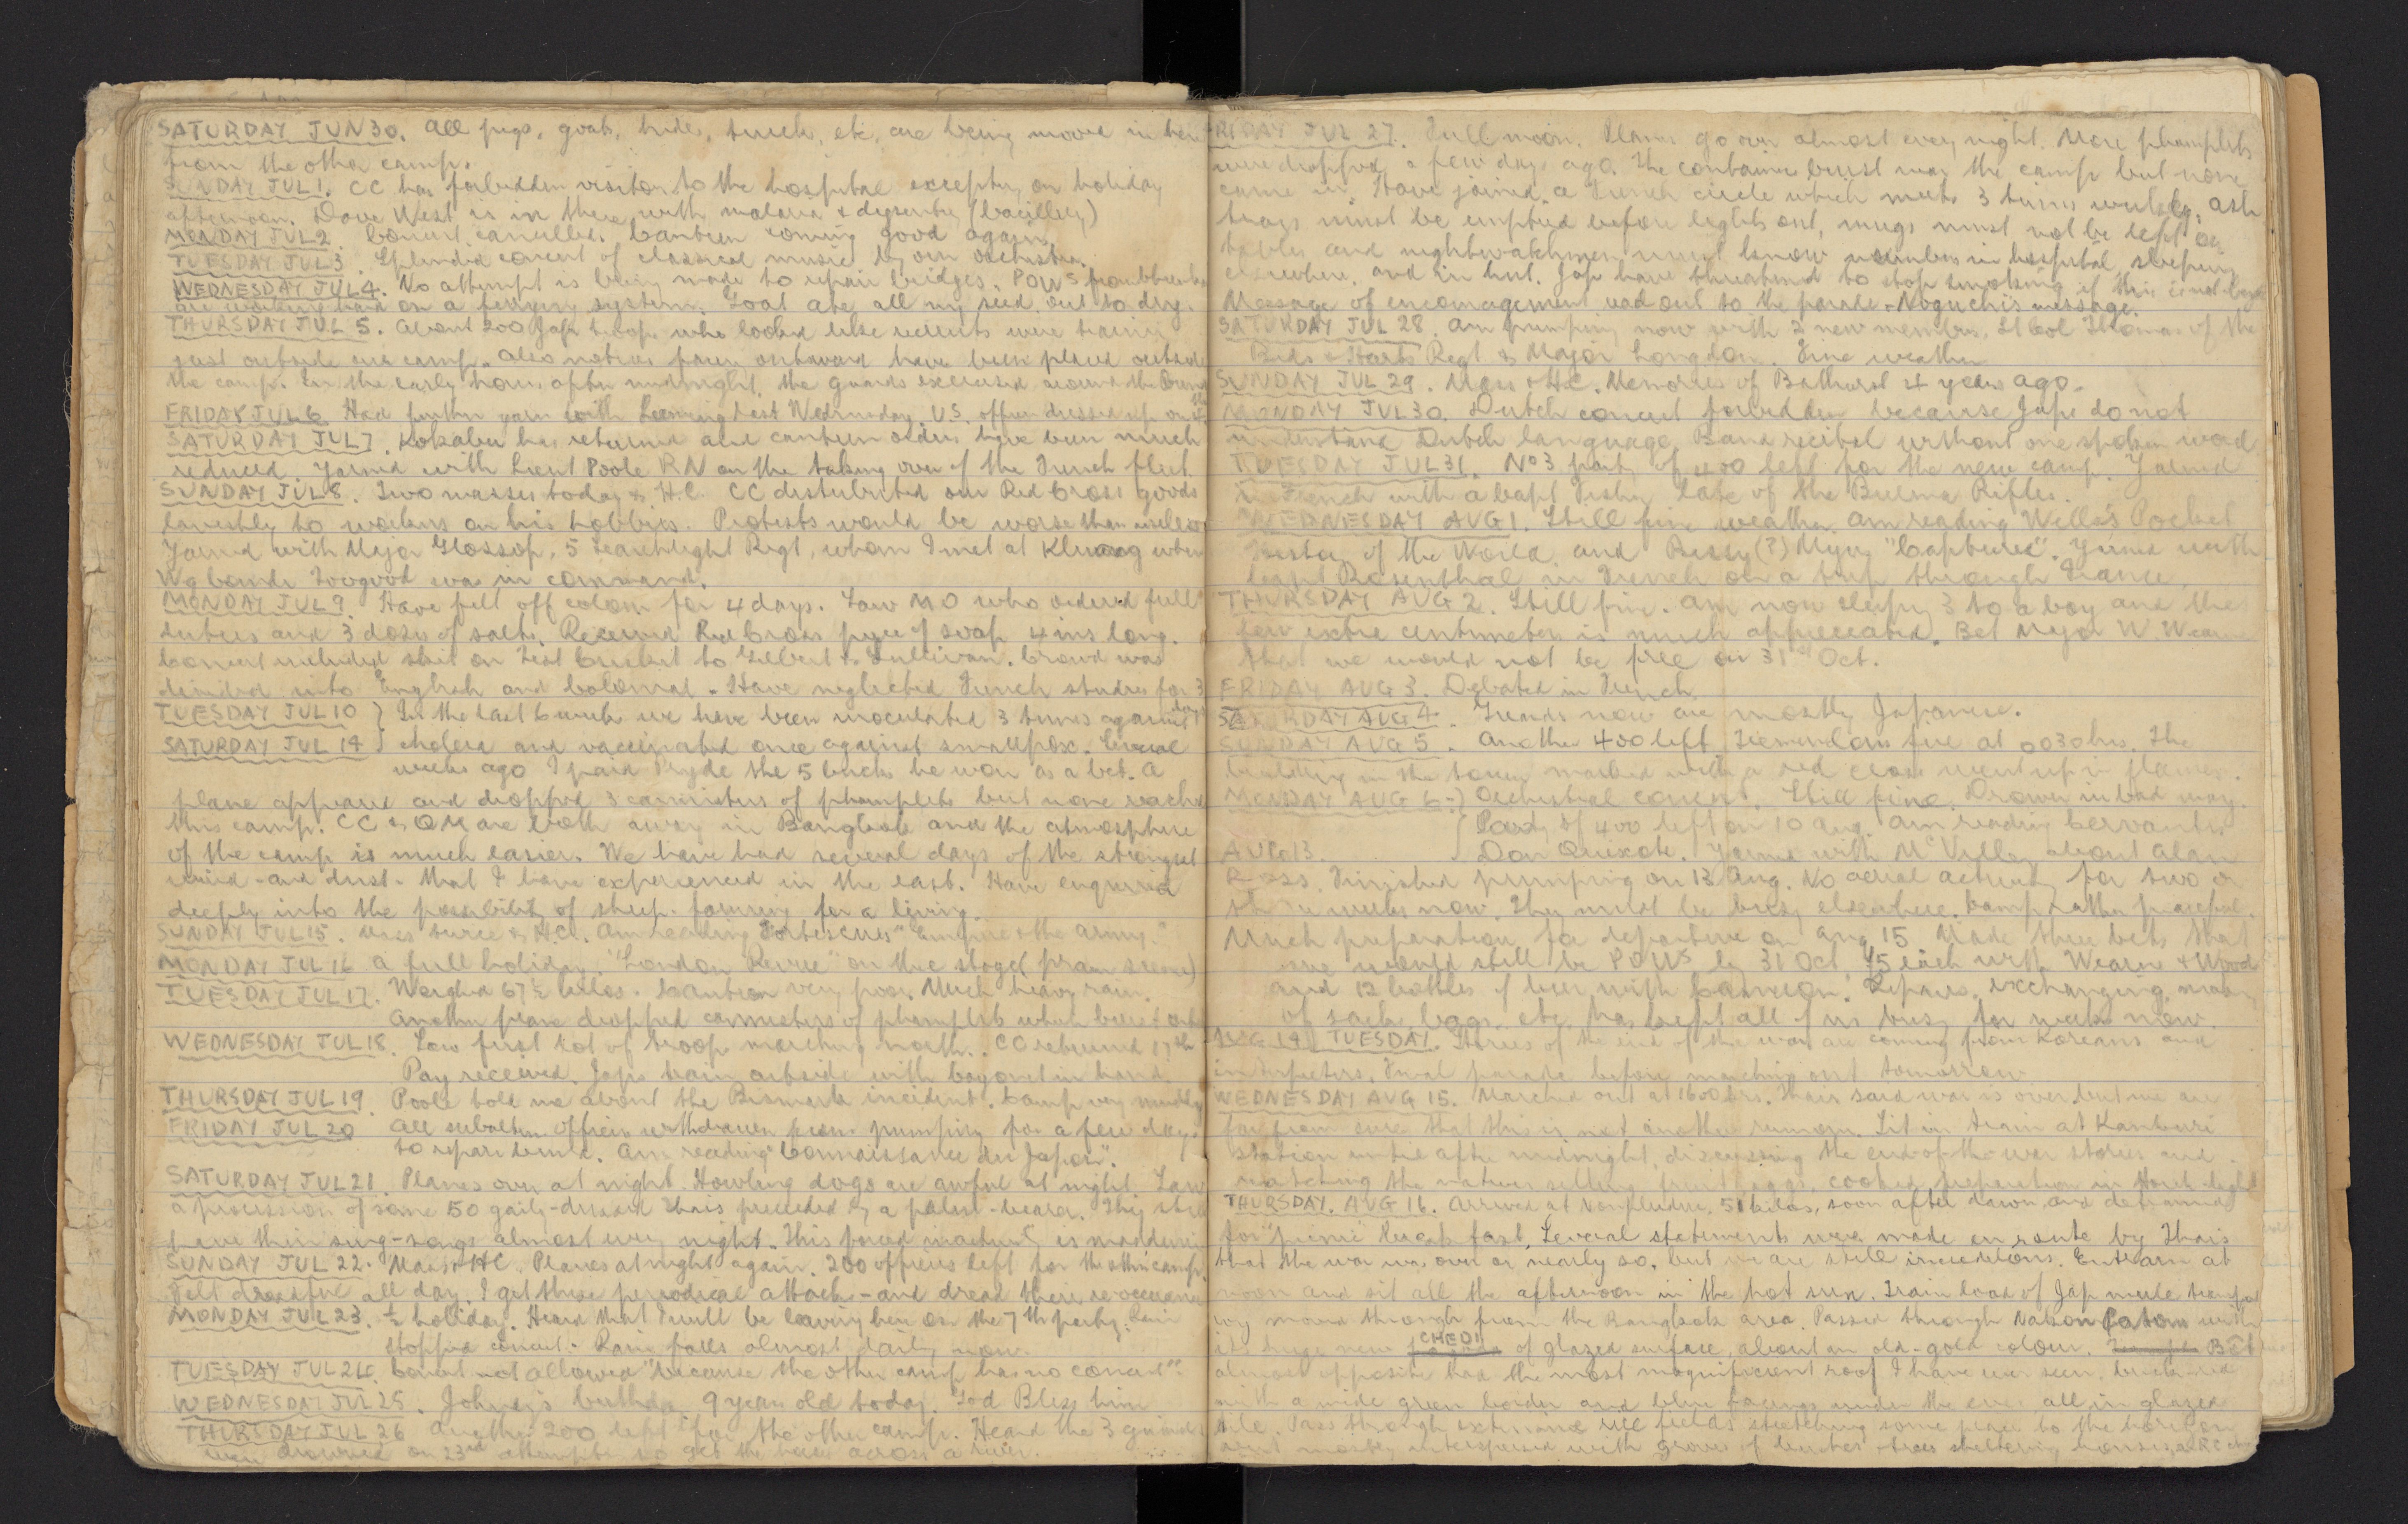 SATURDAY JUN 30. All pigs, goats, hide, etc, are being moved in here
from the other camp.
SUNDAY JUL 1. CC has forbidden visitors to the hospital excepting on holiday
afternoon. Dave West is in there with malaria & dysentry (bacillery)
MONDAY JUL 2. Concert cancelled. Canteen coming good again.
TUESDAY JUL 3. Splendid concert of classical music by our orchestra.
WEDNESDAY JUL 4. No attempt is being made to repair bridges. POWS from
are working hard on a ferrying system. Goat ate all my seed out to dry.
THURSDAY JUL 5. About 200 Jap troops who looked like recruits were training
just outside our camp. Also notices facing outward have been placed outside
the camp. In the early hours after midnight, the guards exercised around the bund
FRIDAY JUL 6 Had further yarn with Leeming last Wednesday, U.S. officer dressed up on the
SATURDAY JUL 7. Kokabu has returned and canteen orders have been much
reduced. Yarned with Lieut Poole RN on the taking over of the French fleet.
SUNDAY JUL 8. Two masses today & H.C. CC distributed our Red Cross goods
lavishly to workers on his hobbies. Protests would be worse than useless
Yarned with Major Glossop, 5 Searchlight Regt, whom I met at Kluang when
Wg Comdr Toogood was in command.
MONDAY JUL 9. Have felt off colour for 4 days. Saw MO who ordered full
duties and 3 doses of salts. Received Red Cross piece of soap 4 ins long.
Concert included skit on Test Cricket to Gilbert & Sullivan. Crowd was
divided into English and Colonial. Have neglected French studies for 3 days
TUESDAY JUL 10 } In the last 6 weeks we have been inoculated 3 times against
SATURDAY JUL 14 } cholera and vaccinated once against smallpox. Several
weeks ago I paid Pryde the 5 bucks he won as a bet. A
plane appeared and dropped 3 cannisters of phamplets but none reached
this camp. CC & QM are both away in Bangkok and the atmosphere
of the camp is much easier. We have had several days of the strongest
wind - and dust - that I have experienced in the east. Have enquired
deeply into the possibility of sheep-farming for a living.
SUNDAY JUL 15. Mass twice & H.C. Am reading Fortescue's "Empire & the Army."
MONDAY JUL 16 A full holiday. "London Revue" on the stage (pram scene)
TUESDAY JUL 17. Weighed 67½ kilos. Canteen very poor. Much heavy rain.
Another plane dropped cannisters of phamplets which burst
WEDNESDAY JUL 18. Saw first lot of troops marching north. CO returned 17th
Pay received. Japs train outside with bayonet in hand.
THURSDAY JUL 19. Poole told me about the Bismark incident. Camp very muddy
FRIDAY JUL 20 All subaltern officers withdrawn from pumping for a few days
to repair bund. Am reading "Connaissance du Japon".
SATURDAY JUL 21. Planes over at night. Howling dogs are awful at night. Saw
a procession of some 50 gaily-dressed Thais preceded by a palm-bearer. They still
have their sing-songs almost every night. This forced inactivity is maddening
SUNDAY JUL 22. Mass & HC. Planes at night again. 200 officers left for the other camp.
Felt dreadful all day. I get these periodical attacks - and dread their re-occurance
MONDAY JUL 23. ½ holiday. Heard that I will be leaving here on the 7th party. Rain
stopped concert. Rain falls almost daily now.
TUESDAY JUL 24. Concert not allowed "because the other camp has no concert".
WEDNESDAY JUL 25. Johnny's birthday. 9 years old today. God Bless him
THURSDAY JUL 26 Another 200 left for the other camp. Heard the 3
were drowned on 23rd attempting to get the across a river.
FRIDAY JUL 27. Full moon. Planes go over almost every night. More phamplets
were dropped a few days ago. The container burst near the camp but none
came in. Have joined a French circle which meets 3 times weekly. Ash
trays must be emptied before lights out, mugs must not be left on
tables and nightwatchmen must know numbers in hospital, sleeping
elsewhere, and in hut. Japs have threatened to stop smoking if this is not done
Message of encouragement read out to the parade - Noguchis message.
SATURDAY JUL 28. Am pumping now with 2 new members. Lt Col Thomas of the
Beds & Herts Regt & Major Longdon. Fine weather
SUNDAY JUL 29. Mass & H.C. Memories of Bathurst 4 years ago.
MONDAY JUL 30. Dutch concert forbidden because Japs do not
understand Dutch language. Band recital without one spoken word
TUESDAY JUL 31. No 3 party of 400 left for the new camp. Yarned
in French with a Capt Fisher late of the Burma Rifles.
WEDNESDAY AUG 1. Still fine weather. Am reading Wells's Pocket
History of the World, and (?) Myu "Captures". Yarned with
Capt Rosenthal in French on a trip through France.
THURSDAY AUG 2. Still fine. Am now sleeping 3 to a bay and the
few extra centimeters is much appreciated. Bet Major W Wearne
that we would not be free on 31st Oct.
FRIDAY AUG 3. Debated in French.
SATURDAY AUG 4. Guards now are mostly Japanese.
SUNDAY AUG 5. Another 400 left. Tremendous fire at 0030 hrs. The
building in the town marked with a red cross went up in flames.
MONDAY AUG 6 -} Orchestral concert. Still fine. Drower in bad way.
Party of 400 left on 10 Aug. Am reading Cervantes
AUG 13. Don Quixote. Yarned with about Alan
Ross. Finished pumping on 13 Aug. No aerial activity for two or
three weeks now. They must be busy elsewhere. Camp rather peaceful.
Much preparation for departure on Aug 15. Made three bets that
we would still be POWS by 31 Oct. 5 each with Wearne & Wood
and 12 bottles of beer with Cameron. Repairs, exchanging, making
of sacks, bags, etc, has kept all of us busy for weeks now
AUG 14 TUESDAY. Stories of the end of the war are coming from Koreans and
interpreters. Final parade before marching out tomorrow
WEDNESDAY AUG 15. Marched out at 1600 hrs. Thais said war is over but we are
far from sure that this is not another rumour. Sit in train at Kanburi
station until after midnight, discussing the end-of-the-war stories and
watching the natives selling fruit, eggs, cooked preparation in torch-light
THURSDAY. AUG 16. Arrived at Nonpladuc, 51 kilos, soon after dawn, and detrained
for "picnic" breakfast. Several statements were made en route by Thais
that the war was over or nearly so, but we are still incredulous. Entrain at
noon and sit all the afternoon in the hot sun. Train load of Jap mule transport
moved through from the Bangkok area. Passed through Nakon Patom with
its huge new CHEDI of glazed surface, about an old-gold colour. BŌT
almost opposite had the most magnificent roof I have ever seen, brick-red
with a wide green border and blue facings under the eves all in glazed
tile. Pass through extensive rice fields stretching some place to the horizon
but mostly interspersed with groves of trees sheltering houses,